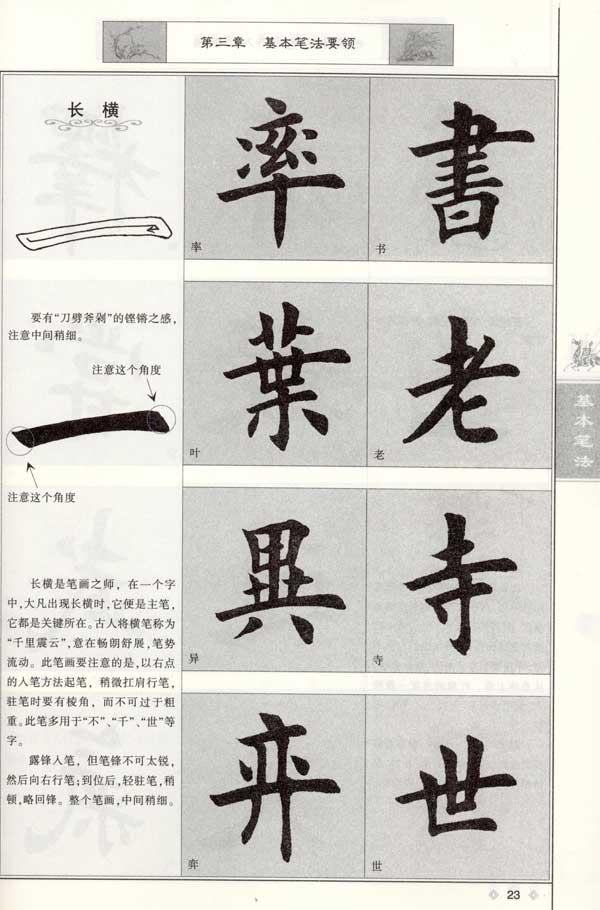 第三章 基本笔法要领
长 横
率
書
书
要有“刀劈斧剁”的铿锵之感，
注意中间稍细。
注意这个角度
注意这个角度
葉
叶
老
老
基本笔法
異
异
寺
寺
长横是笔画之师，在一个字
中，大凡出现长横时，它便是主笔，
它都是关键所在。古人将横笔称为
“千里震云”，意在畅朗舒展，笔势
流动。此笔画要注意的是，以右点
的入笔方法起笔，稍微扛肩行笔，
驻笔时要有棱角，而不可过于粗
重。此笔多用于“不”、“千”、“世”等
字。
露锋入笔，但笔锋不可太锐，
然后向右行笔；到位后，轻驻笔，稍
顿，略回锋。整个笔画，中间稍细。
率
弈
弈
世
世
23